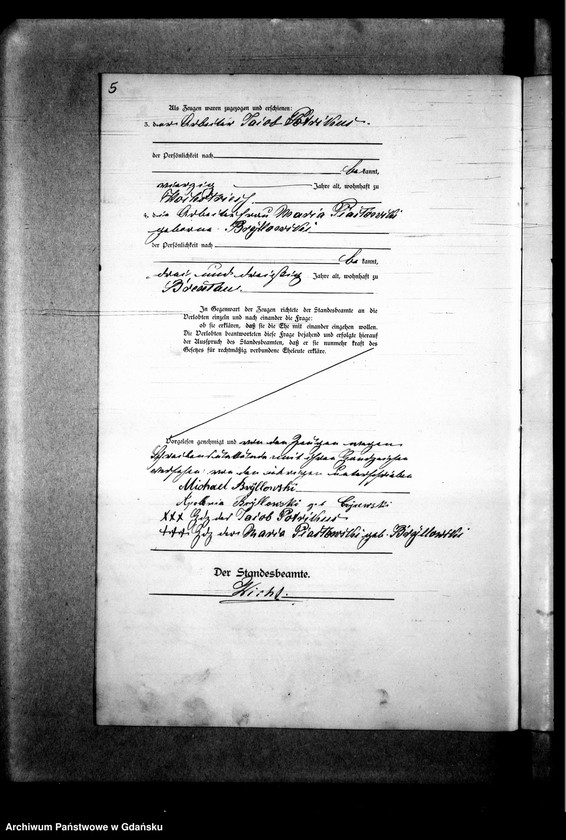 5
Als Zeugen waren zugezogen und erschienen:
3. der Arbeiter Jacob Potrikus
der Persönlichkeit nach
be kannt,
vierzig Jahre alt, wohnhaft zu
4. die Arbeiterfrau Maria Piastowski
geborene Bryllowski
der Persönlichkeit nach
be kannt,
drei und dreißig Jahre alt, wohnhaft zu
In Gegenwart der Zeugen richtete der Standesbeamte an die
Verlobten einzeln und nach einander die Frage:
ob sie erklären, daß sie die Ehe mit einander eingehen wollen.
Die Verlobten beantworteten diese Frage bejahend und erfolgte hierauf
der Ausspruch des Standesbeamten, daß er sie nunmehr kraft des
Gesetzes für rechtmäßig verbundene Eheleute erkläre.
Vorgelesen genehmigt und von den Zeugen wegen
Schreibensunkunde mit ihren Handzeichen
versehen, von den übrigen unterschrieben
Michael Bryllowski
Bryllowski geb
+++ Hdz des Jacob Potrikus
+++ Hdz der Maria Piastowski geb. Bryllowski
Der Standesbeamte.
Wicht.
Archiwum Państwowe w Gdańsku